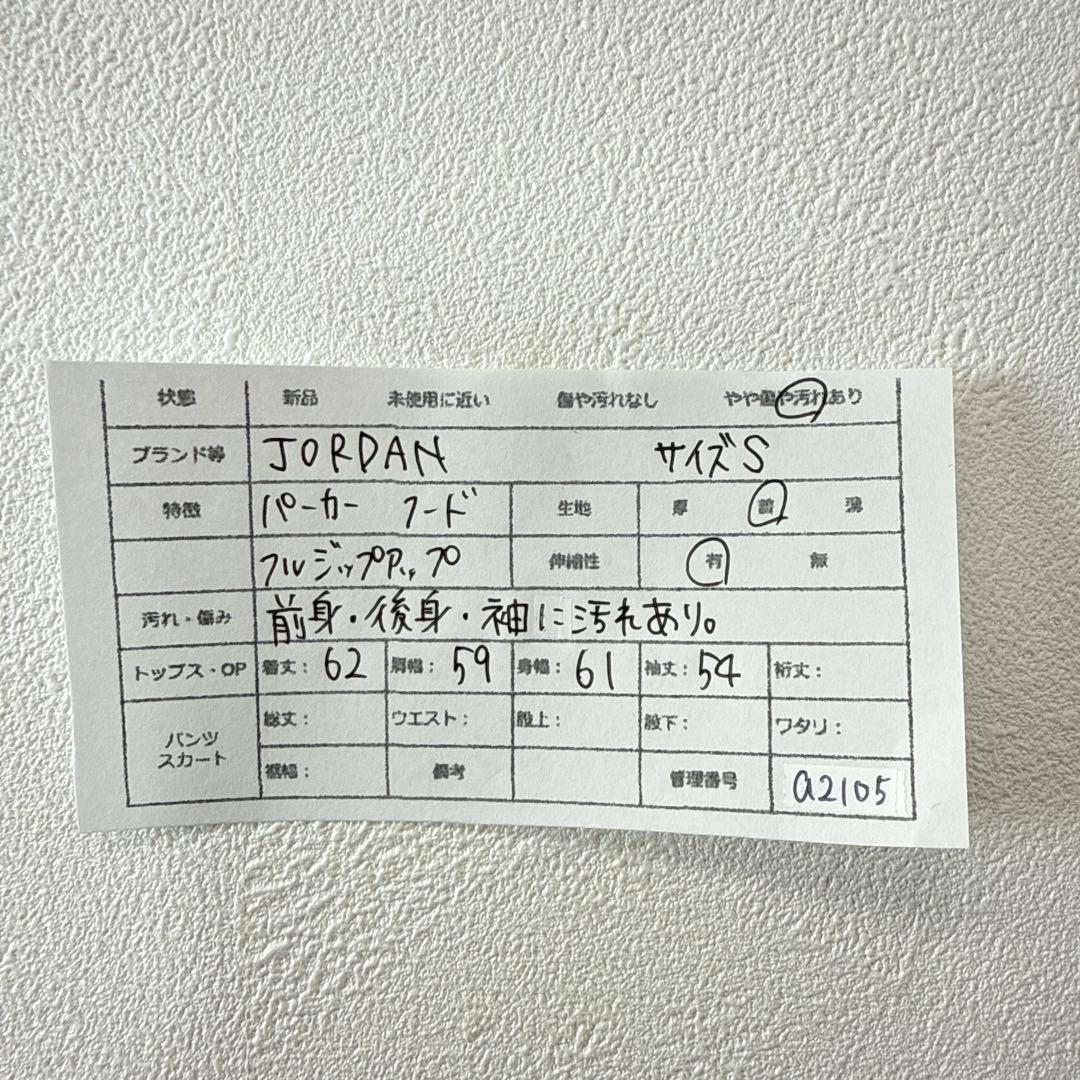 状態 新品 未使用に近い 傷や汚れなし やや傷や汚れあり
ブランド等 JORDAN サイズS
特徴 パーカー フード 生地 厚 普 薄
フルジップアップ 伸縮性 有 無
汚れ・傷み 前身・後身・袖に汚れあり。
トップス・OP 着丈: 62 肩幅: 59 身幅: 61 袖丈: 54 裄丈:
パンツ
スカート
総丈: ウエスト: 股上: 股下: ワタリ:
裾幅: 備考 管理番号 a2105